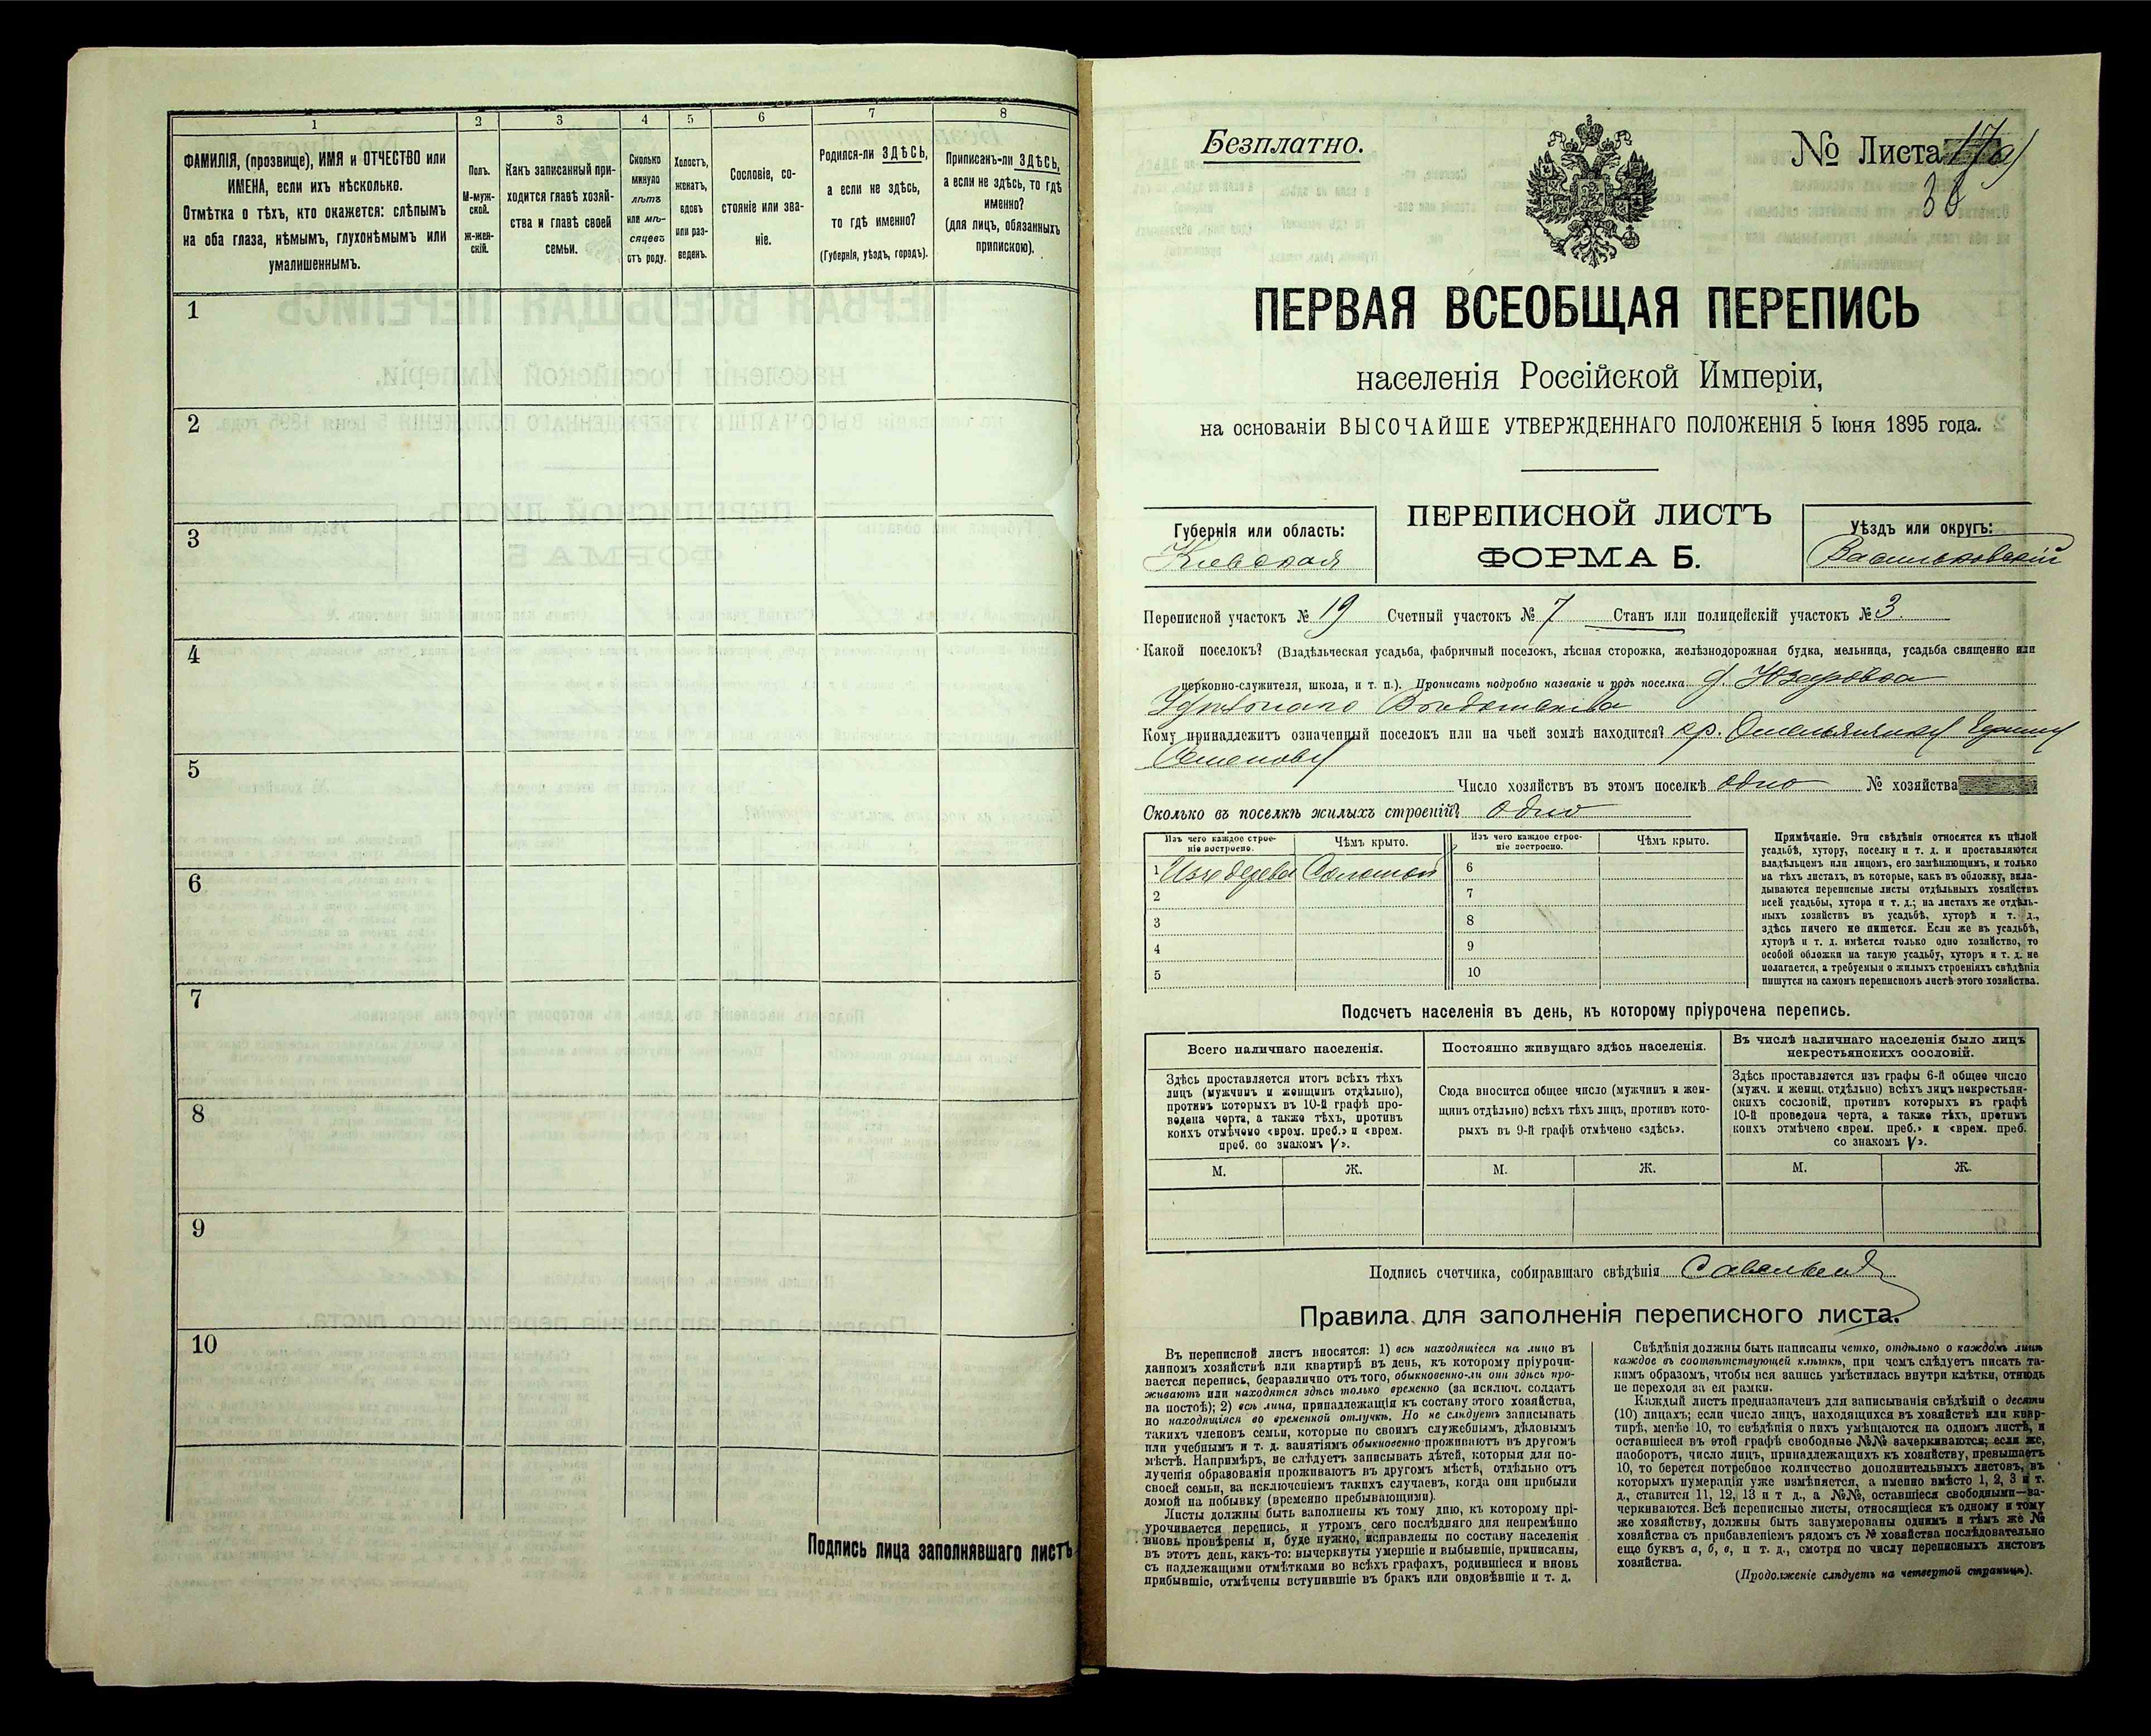 1
2
3
4
5
6
7
8
ФАМИЛІЯ, (прозвище), ИМЯ и ОТЧЕСТВО или
ИМЕНА, если ихъ нѣсколько.
Отмѣтка о тѣхъ, кто окажется: слѣпымъ
на оба глаза, нѣмымъ, глухонѣмымъ или
умалишеннымъ.
Полъ.
М-муж-
ской.
Ж-жен-
скій.
Какъ записанный при-
ходится главѣ хозяй-
ства и главѣ своей
семьи.
Сколько
минуло
лѣтъ
или мѣ-
сяцевъ
отъ роду.
Холостъ,
женатъ,
вдовъ
или раз-
веденъ.
Сословіе, со-
стояніе или зва-
ніе.
Родился-ли ЗДѢСЬ,
а если не здѣсь,
то гдѣ именно?
(Губернія, уѣздъ, городъ).
Приписанъ-ли ЗДѢСЬ,
а если не здѣсь, то гдѣ
именно?
(для лицъ, обязанныхъ
припискою).
1
2
3
4
5
6
7
8
9
10
Подпись лица заполнявшаго листъ
Безплатно.
№ Листа 17а)
38
ПЕРВАЯ ВСЕОБЩАЯ ПЕРЕПИСЬ
населенія Россійской Имперіи,
на основаніи ВЫСОЧАЙШЕ УТВЕРЖДЕННАГО ПОЛОЖЕНІЯ 5 Іюня 1895 года.
Губернія или область:
Кіевская
ПЕРЕПИСНОЙ ЛИСТЪ
ФОРМА Б.
Уѣздъ или округъ:
Васильковскій
Переписной участокъ № 19 Счетный участокъ № 7 Станъ или полицейскій участокъ № 3.
Какой поселокъ? (Владѣльческая усадьба, фабричный поселокъ, лѣсная сторожка, желѣзнодорожная будка, мельница, усадьба священно или
церковно-служителя, школа, и т. п.). Прописать подробно названіе и родъ поселка д.
Кому принадлежитъ означенный поселокъ или на чьей землѣ находится? кр.
Число хозяйствъ въ этомъ поселкѣ одно № хозяйства
Сколько въ поселкѣ жилыхъ строеній? одно
Изъ чего каждое строе-
ніе построено.
Чѣмъ крыто.
Изъ чего каждое строе-
ніе построено.
Чѣмъ крыто.
1 Изъ дерева Соломой
2
3
4
5
6
7
8
9
10
Примѣчаніе. Эти свѣдѣнія относятся къ цѣлой
усадьбѣ, хутору, поселку и т. д. и проставляются
владѣльцемъ или лицомъ, его замѣняющимъ, и только
на тѣхъ листахъ, въ которые, какъ въ обложку, вкла-
дываются переписные листы отдѣльныхъ хозяйствъ
всей усадьбы, хутора и т. д.; на листахъ же отдѣль-
ныхъ хозяйствъ въ усадьбѣ, хуторѣ и т. д.,
здѣсь ничего не пишется. Если же въ усадьбѣ,
хуторѣ и т. д. имѣется только одно хозяйство, то
особой обложки на такую усадьбу, хуторъ и т. д. не
полагается, а требуемыя о жилыхъ строеніяхъ свѣдѣнія
пишутся на самомъ переписномъ листѣ этого хозяйства.
Подсчетъ населенія въ день, къ которому пріурочена перепись.
Всего наличнаго населенія.
Здѣсь проставляется итогъ всѣхъ тѣхъ
лицъ (мужчинъ и женщинъ отдѣльно),
противъ которыхъ въ 10-й графѣ про-
ведена черта, а также тѣхъ, противъ
коихъ отмѣчено «врем. преб.» и «врем.
преб. со знакомъ V».
Постоянно живущаго здѣсь населенія.
Сюда вносится общее число (мужчинъ и жен-
щинъ отдѣльно) всѣхъ тѣхъ лицъ, противъ кото-
рыхъ въ 9-й графѣ отмѣчено «здѣсь».
Въ числѣ наличнаго населенія было лицъ
некрестьянскихъ сословій.
Здѣсь проставляется изъ графы 6-й общее число
(мужч. и женщ. отдѣльно) всѣхъ лицъ некрестьян-
скихъ сословій, противъ которыхъ въ графѣ
10-й проведена черта, а также тѣхъ, противъ
коихъ отмѣчено «врем. преб.» и «врем. преб.
со знакомъ V».
М.
Ж.
М.
Ж.
М.
Ж.
Подпись счетчика, собиравшаго свѣдѣнія
Правила для заполненія переписного листа.
Въ переписной листъ вносятся: 1) всѣ находящіеся на лицо въ
данномъ хозяйствѣ или квартирѣ въ день, къ которому пріурочи-
вается перепись, безразлично отъ того, обыкновенно-ли они здѣсь про-
живаютъ или находятся здѣсь только временно (за исключ. солдатъ
на постоѣ); 2) всѣ лица, принадлежащія къ составу этого хозяйства,
но находящіяся во временной отлучкѣ. Но не слѣдуетъ записывать
такихъ членовъ семьи, которые по своимъ служебнымъ, дѣловымъ
или учебнымъ и т. д. занятіямъ обыкновенно проживаютъ въ другомъ
мѣстѣ. Напримѣръ, не слѣдуетъ записывать дѣтей, которыя для по-
лученія образованія проживаютъ въ другомъ мѣстѣ, отдѣльно отъ
своей семьи, за исключеніемъ такихъ случаевъ, когда они прибыли
домой на побывку (временно пребывающими).
Листы должны быть заполнены къ тому дню, къ которому прі-
урочивается перепись, и утромъ сего послѣдняго дня непремѣнно
вновь провѣрены и, буде нужно, исправлены по составу населенія
въ этотъ день, какъ-то: вычеркнуты умершіе и выбывшіе, приписаны,
съ надлежащими отмѣтками во всѣхъ графахъ, родившіеся и вновь
прибывшіе, отмѣчены вступившіе въ бракъ или овдовѣвшіе и т. д.
Свѣдѣнія должны быть написаны четко, отдѣльно о каждомъ лицѣ
каждое въ соотвѣтствующей клѣткѣ, при чемъ слѣдуетъ писать та-
кимъ образомъ, чтобы вся запись умѣстилась внутри клѣтки, отнюдь
не переходя за ея рамки.
Каждый листъ предназначенъ для записыванія свѣдѣній о десяти
(10) лицахъ; если число лицъ, находящихся въ хозяйствѣ или квар-
тирѣ, менѣе 10, то свѣдѣнія о нихъ умѣщаются на одномъ листѣ, и
оставшіеся въ этой графѣ свободные №№ зачеркиваются; если же,
наоборотъ, число лицъ, принадлежащихъ къ хозяйству, превышаетъ
10, то берется потребное количество дополнительныхъ листовъ, въ
которыхъ нумерація уже измѣняется, а именно вмѣсто 1, 2, 3 и т.
д., ставится 11, 12, 13 и т д., а №№, оставшіеся свободными—за-
черкиваются. Всѣ переписные листы, относящіеся къ одному и тому
же хозяйству, должны быть занумерованы однимъ и тѣмъ же №
хозяйства съ прибавленіемъ рядомъ съ № хозяйства послѣдовательно
еще буквъ а, б, в, и т. д., смотря по числу переписныхъ листовъ
хозяйства.
(Продолженіе слѣдуетъ на четвертой страницѣ).